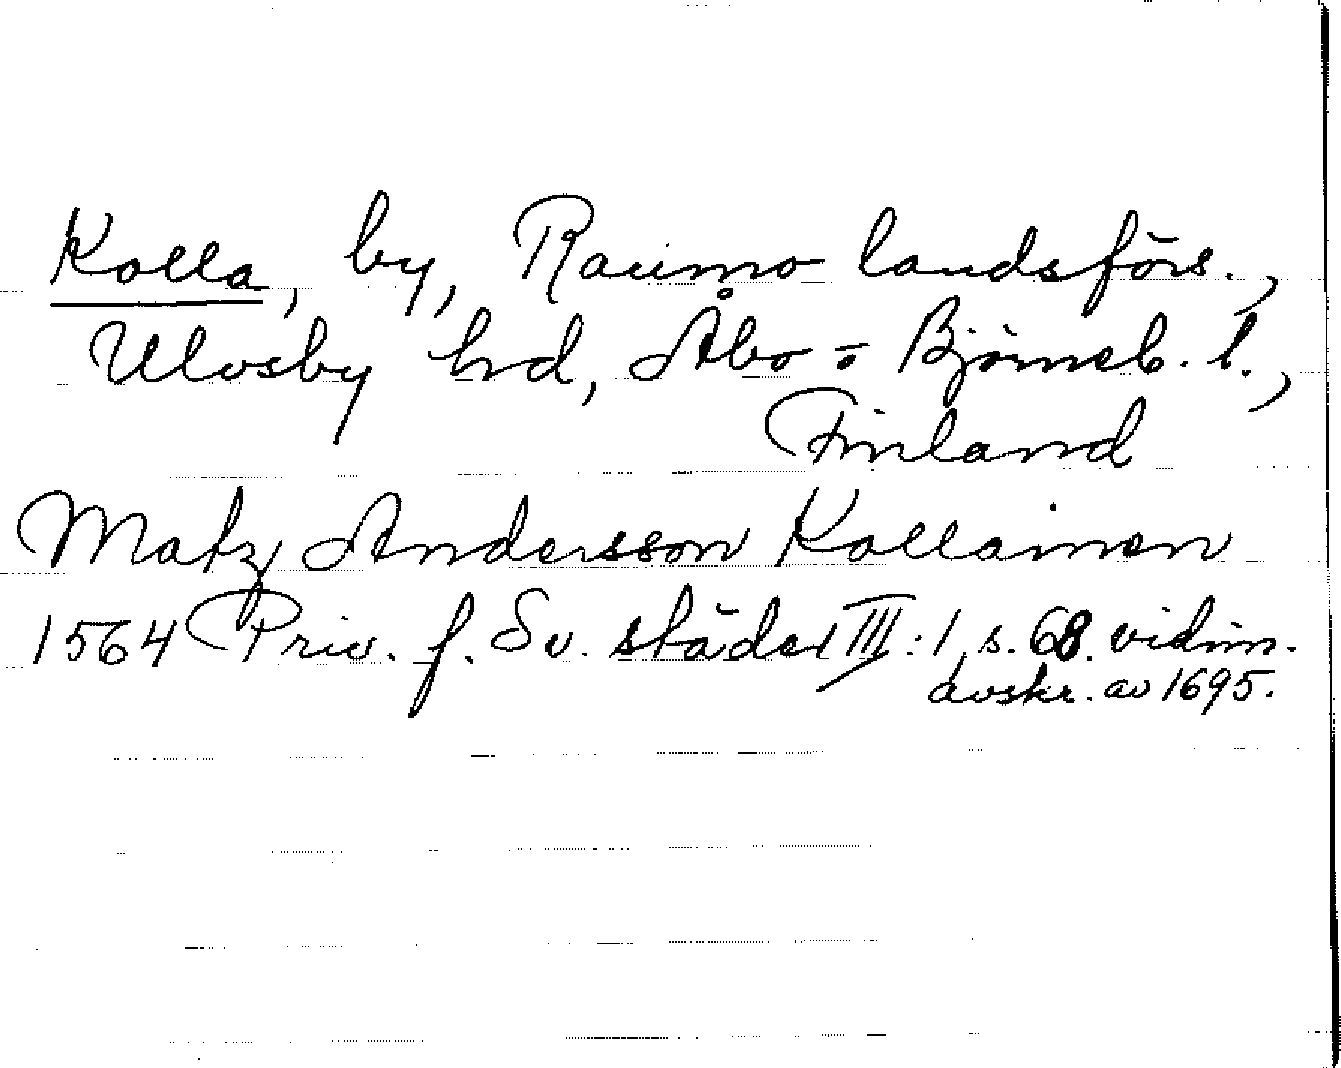 Kolla, by, Raumo landsförs.,
Ulvsby hd, Åbo- o Björneb. l.,
Finland
Matz Andersson Kollainen
1564 Priv. f. Sv. städer III:1 s. 68. vidim.
avskr. av 1695.